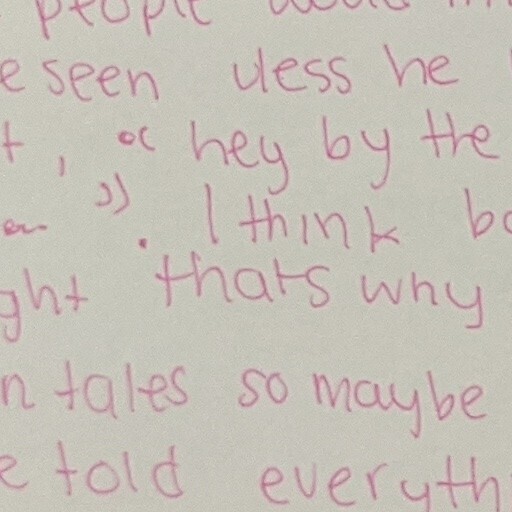 people
e seen uless he
t, " hey by the
". I think bo
ght thats why
n tales so maybe
e told everyth